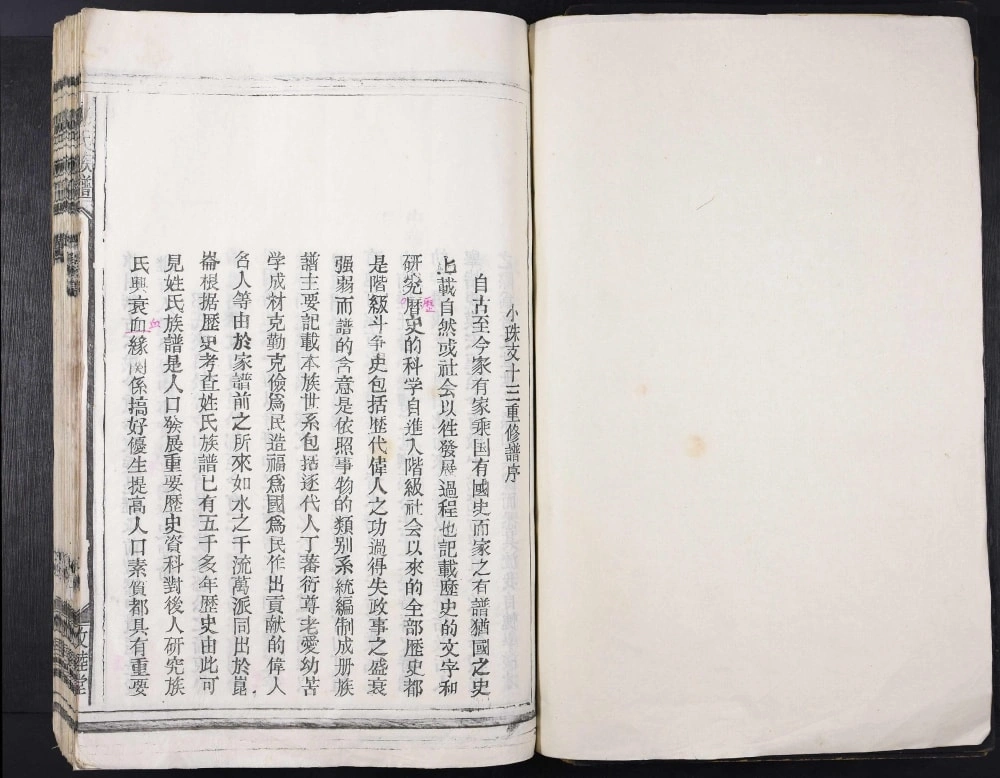 小珠支十三重修譜序
自古至今家有家乘国有國史而家之有譜猶國之史
也載自然或社会以徃發展過程也記載歷史的文字和
研究暦史的科学自進入階級社会以來的全部歷史都
歷
是階級斗争史包括歷代偉人之功過得失政事之盛衰
强弱而譜的含意是依照事物的類别系統編制成册族
譜主要記載本族世系包括逐代人丁蕃衍尊老愛幼苦
学成材克勤克儉爲民造福爲國爲民作出貢献的偉人
名人等由於家譜前之所來如水之千流萬派同出於崑
崙根据歷史考查姓氏族譜已有五千多年歷史由此可
見姓氏族譜是人口發展重要歷史資科對後人研究族
氏興衰血緣関係搞好優生提高人口素質都具有重要
血
族譜
堂